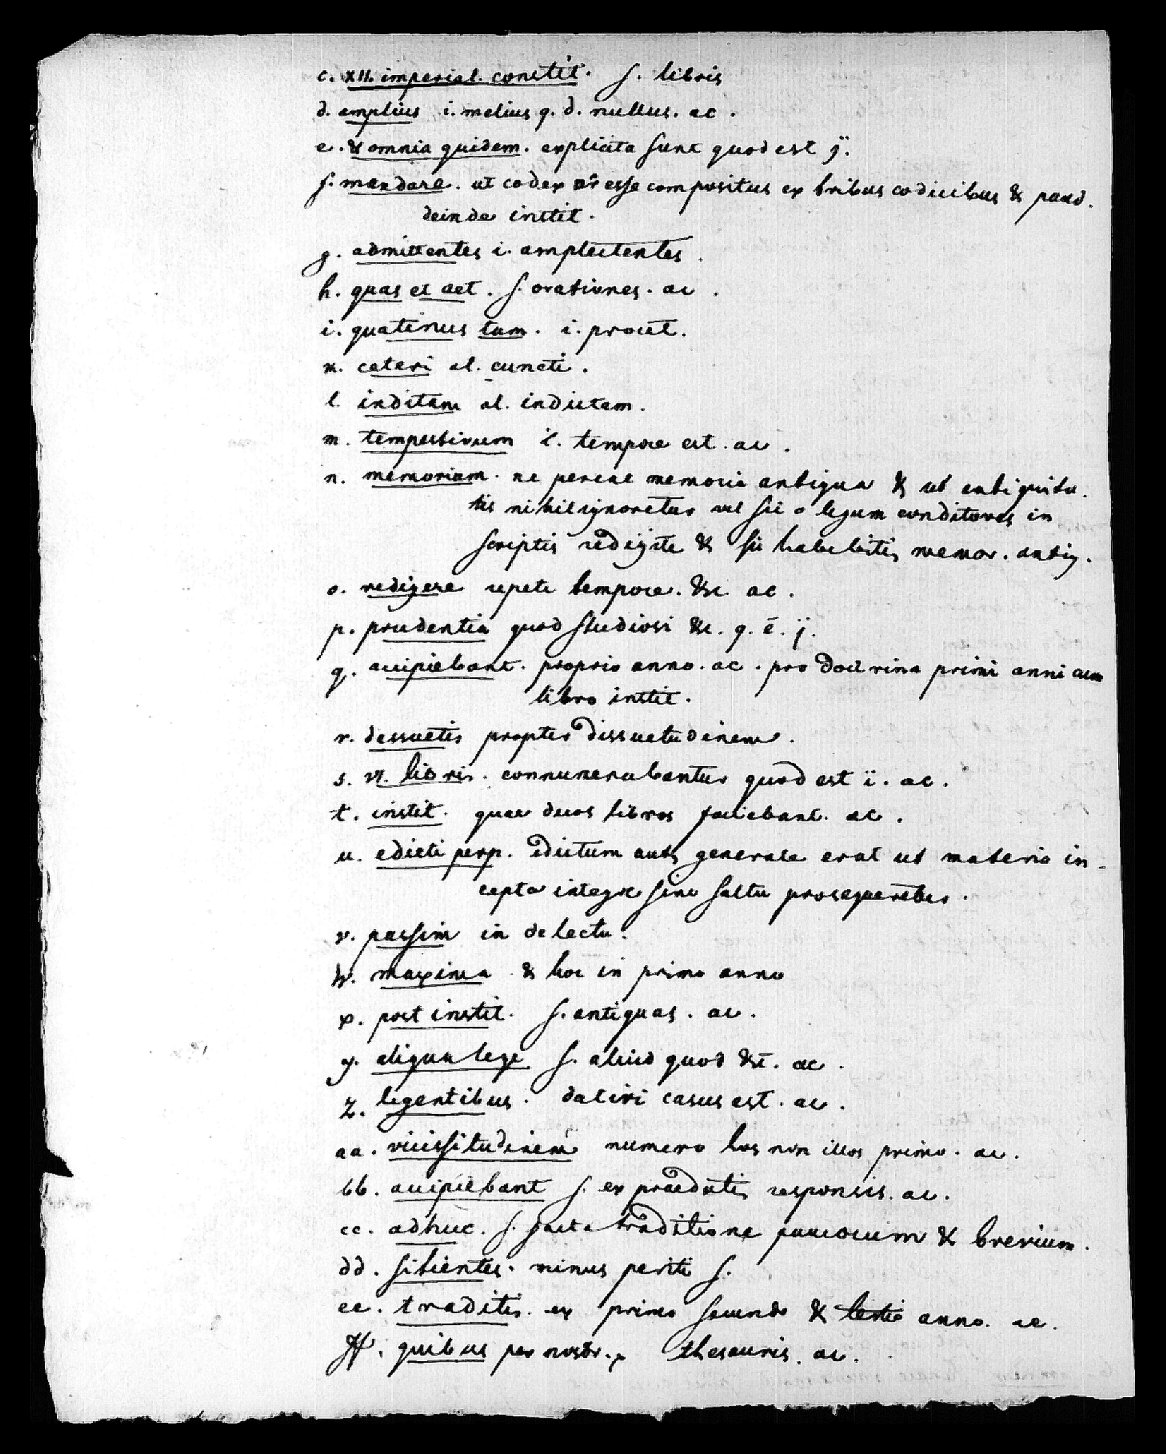 c. XII. imperial. constit. s. libris
d. amplius i. melius q. d. nullus. ac.
e. & omnia quidem. explicita sunt quod est ÿ.
f. mandare. ut codex esse compositus ex tribus codicibus & pand.
deinde instit.
g. admittentes i. amplectentes.
h. quas et aet. s. orationes. ac.
i. quatinus tum. i. procul.
k. cateri al. cuncti.
l. inditam al. indictam.
m. tempestivum i. tempore est. ac.
n. memoriam. ne pereat memoria antiqua & ut antiquita.
tis nihil ignoretur vel sic o legum conditores in
scriptis redigite & sic habebitis memor. antiq.
o. redigere repeti tempore. &c. ac.
p. prudentia quod studiosi &c. q. ē. ÿ.
q. accipiebant. proprio anno. ac. pro doctrina primi anni cum
libro instit.
r. dessuetis propter dissuetudinem.
s. VI. libris. connumerabantur quod est ï. ac.
t. instit. quae duos libros faciebant. ac.
u. edicti perp. edictum aut generale erat ut materia in-
cepta integre sine saltu prosequeretur.
v. passim in delectu.
w. maxima & hoc in primo anno
x. post instit. s. antiquas. ac.
y. aliqua lege s. aliud quod &c. ac.
z. legentibus. dativi casus est. ac.
aa. vicissitudinem numero hos non illos primo. ac.
bb. accipiebant s. ex praedictis responsis. ac.
cc. adhuc. s. facta traditione paucorum & brevium.
dd. sitientes. minus periti s.
ee. traditis. ex primo secundo & tertio anno. ac.
ff. quibus per nostr. thesauris. ac.